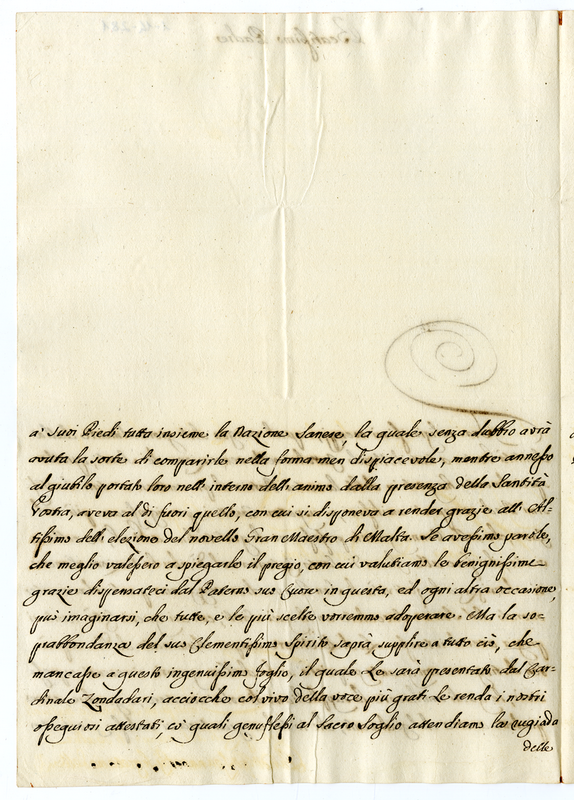 à suoi Piedi tutta insieme la Nazione Sanese, la quale senza dubbio avrà
avuta la sorte di comparirle nella forma men dispiacevole, mentre annesso
al giubilo portato loro nell'interno dell'animo dalla presenza della Santità
Vostra, aveva al di fuori quello, con cui si disponeva a render grazie all'Al-
tissimo dell'elezione del novello Gran Maestro di Malta. Se avessimo parole,
che meglio valessero a spiegarle il pregio, con cui valutiamo le benignissime
grazie dispensateci dal Paterno suo Cuore in questa, ed ogni altra occasione,
può imaginarsi, che tutte, e le più scelte vorremmo adoperare. Ma la so-
prabbondanza del suo Clementissimo Spirito saprà supplire a tutto ciò, che
mancasse a questo ingenuissimo foglio, il quale Le sarà presentato dal Car-
dinale Zondadari, acciocche col vivo della voce più grati Le renda i nostri
ossequiosi attestati, co' quali genuflessi al Sacro Soglio attendiamo la rugiada
delle